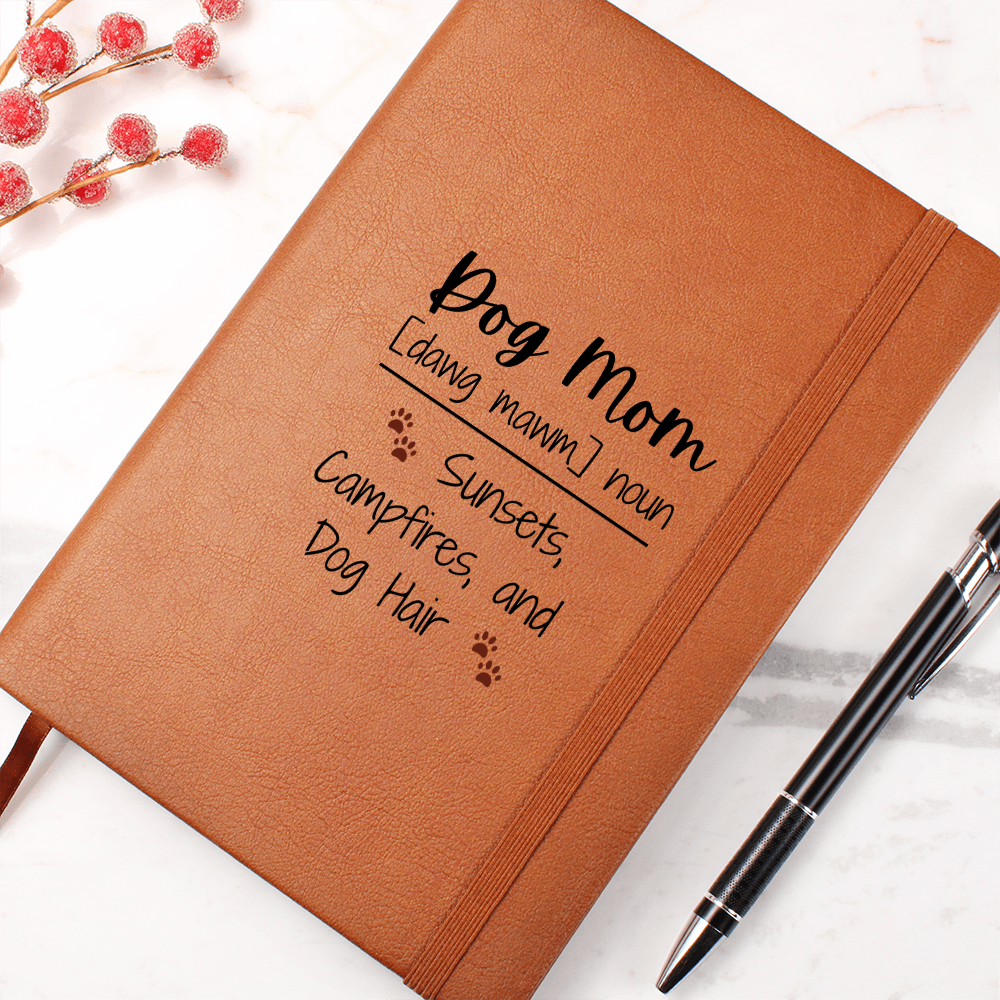 Dog Mom
[dawg mawm] noun
Sunsets,
Campfires, and
Dog Hair